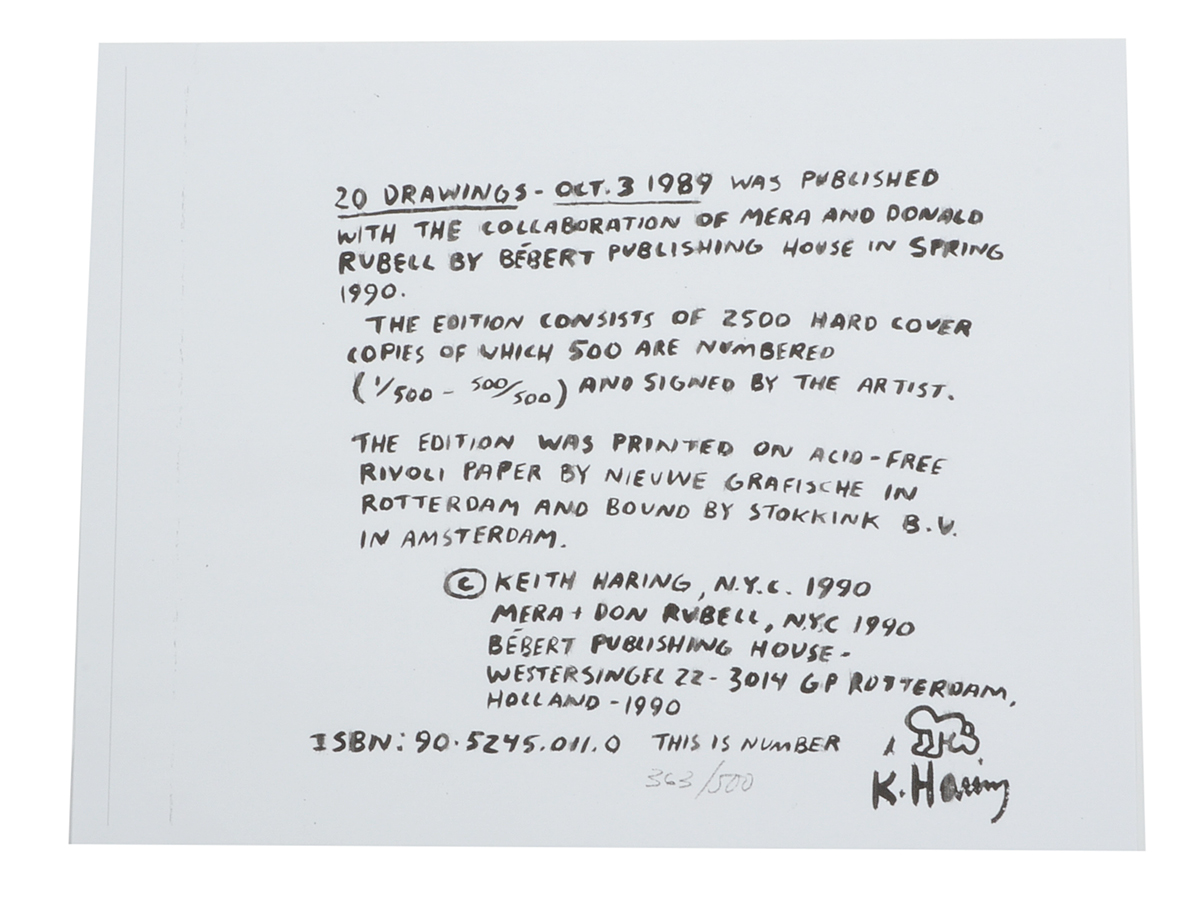 20 DRAWINGS - OCT. 3 1989 WAS PUBLISHED
WITH THE COLLABORATION OF MERA AND DONALD
RUBELL BY BÉBERT PUBLISHING HOUSE IN SPRING
1990.
THE EDITION CONSISTS OF 2500 HARD COVER
COPIES OF WHICH 500 ARE NUMBERED
(1/500 - 500/500) AND SIGNED BY THE ARTIST.
THE EDITION WAS PRINTED ON ACID-FREE
RIVOLI PAPER BY NIEUWE GRAFISCHE IN
ROTTERDAM AND BOUND BY STOKKINK B.V.
IN AMSTERDAM.
© KEITH HARING, N.Y.C. 1990
MERA + DON RUBELL, NYC 1990
BÉBERT PUBLISHING HOUSE -
WESTERSINGEL 22 - 3014 GP ROTTERDAM,
HOLLAND - 1990
ISBN: 90.5245.011.0 THIS IS NUMBER
363/500
K. Haring